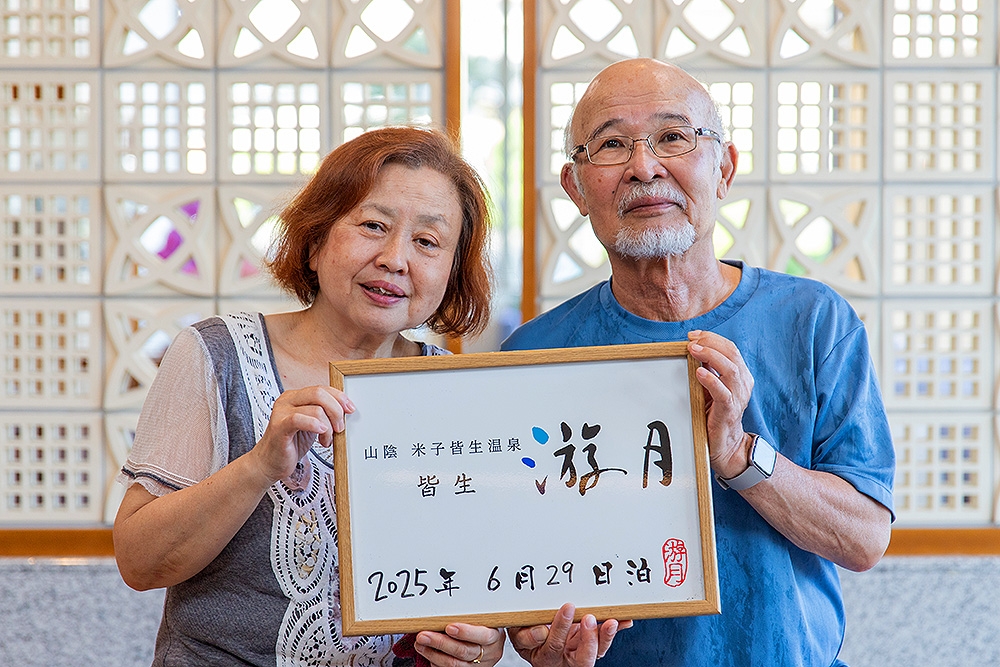 山陰 米子皆生温泉
皆生 游月
2025年 6月29日泊
游月